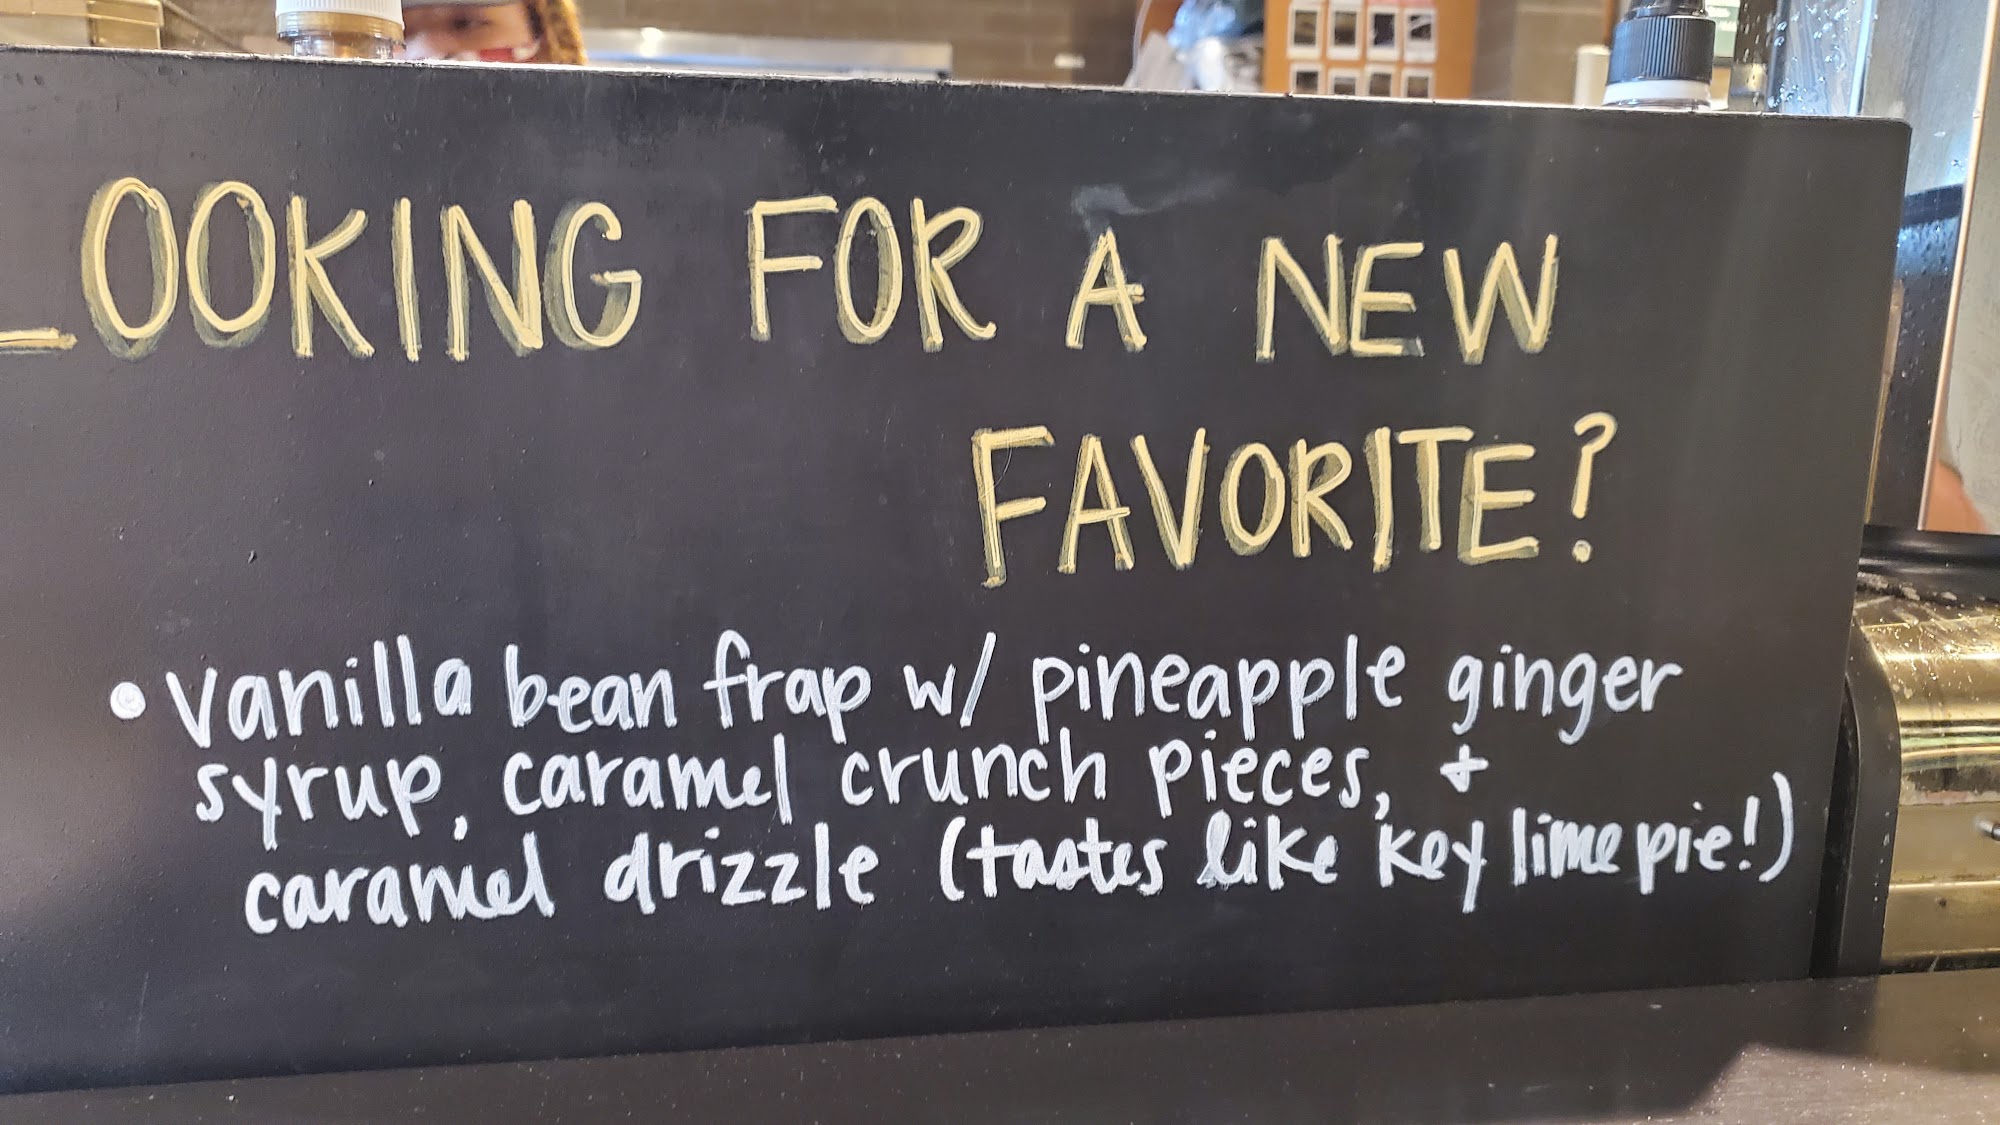 LOOKING FOR A NEW
FAVORITE?
• vanilla bean frap w/ pineapple ginger
syrup, caramel crunch pieces, +
caramel drizzle (tastes like key lime pie!)